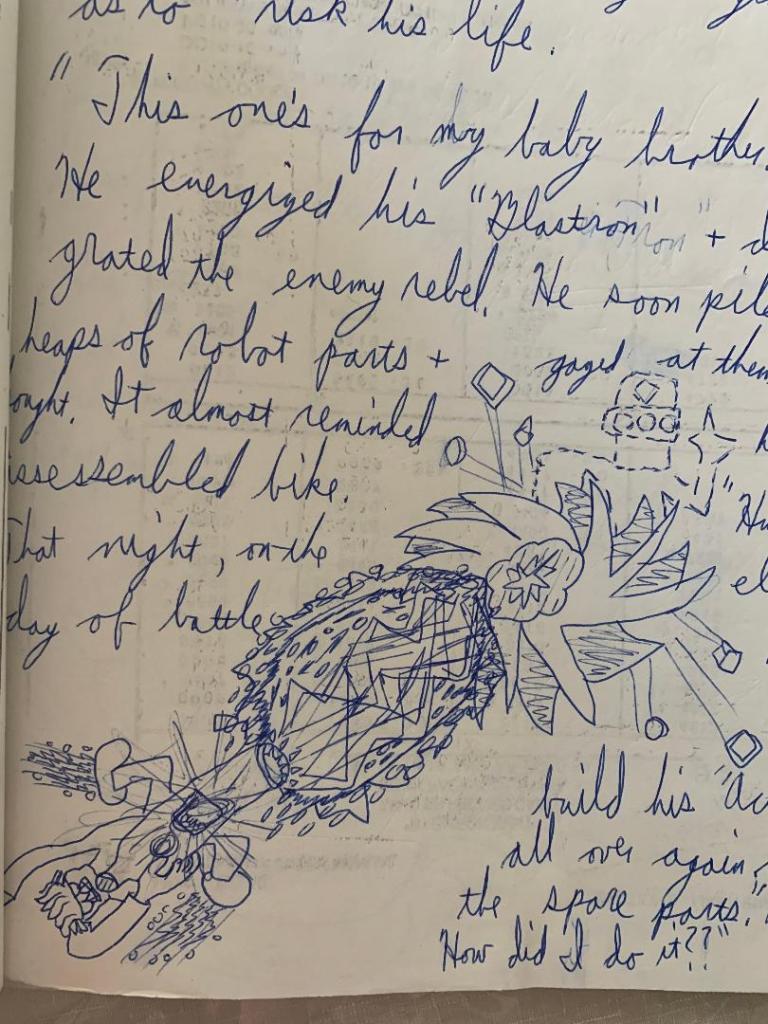 as to risk his life.
"This one's for my baby brother.
He energized his "Blastron" + d
grated the enemy rebel. He soon pile
heaps of robot parts + gazed at them
ought. It almost reminded
issessembled bike.
"Hu
That night, on the
el
day of battle
build his "Ac
all over again,
the spare parts."
"How did I do it??"